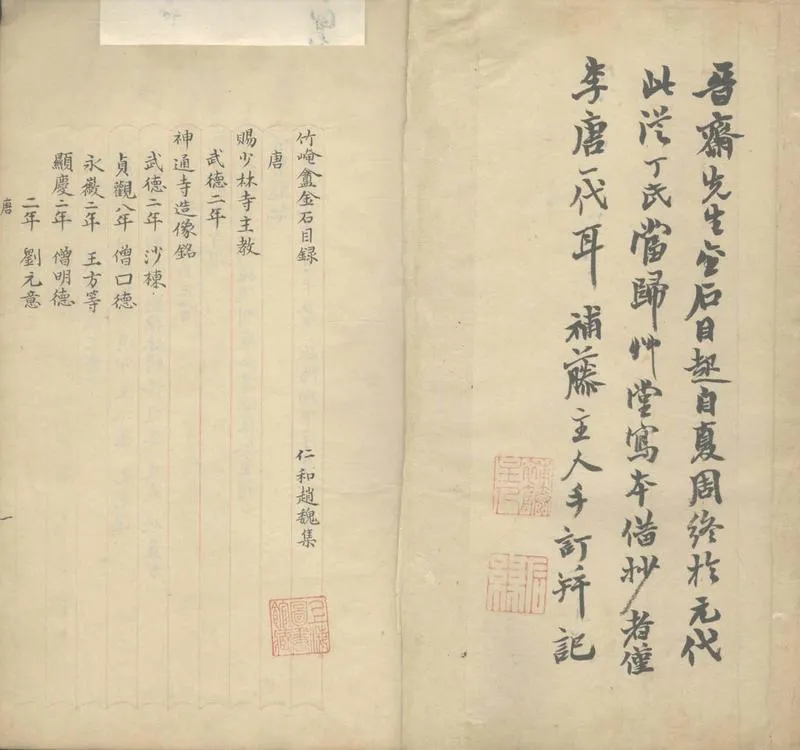 晉齋先生金石目起自夏周終於元代
此從丁氏當歸艸堂寫本借抄者僅
李唐一代耳 補藤主人手訂幷記
竹崦盦金石目録 仁和趙魏集
唐
賜少林寺主教
武德二年
神通寺造像銘
武德二年 沙棟
貞觀八年 僧口德
永徽二年 王方等
顯慶二年 僧明德
二年 劉元意
唐
一